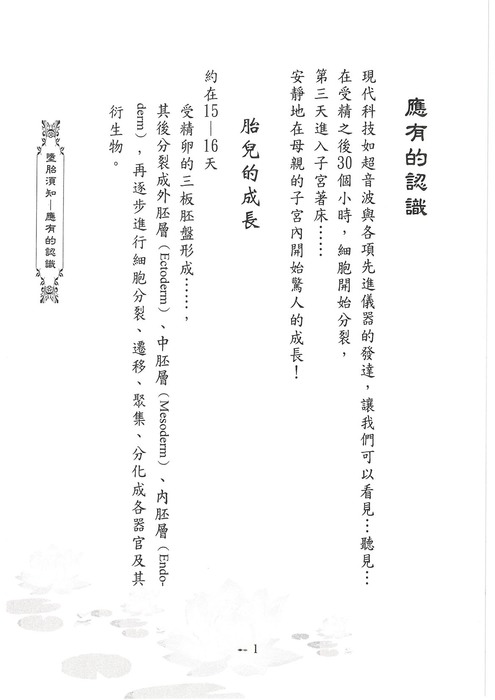 應有的認識
現代科技如超音波與各項先進儀器的發達，讓我們可以看見…聽見…
在受精之後30個小時，細胞開始分裂，
第三天進入子宮著床……
安靜地在母親的子宮內開始驚人的成長！
胎兒的成長
約在15—16天
受精卵的三板胚盤形成……，
其後分裂成外胚層（Ectoderm）、中胚層（Mesoderm）、內胚層（Endo-
derm），再逐步進行細胞分裂、遷移、聚集、分化成各器官及其
衍生物。
墮胎須知—應有的認識
1